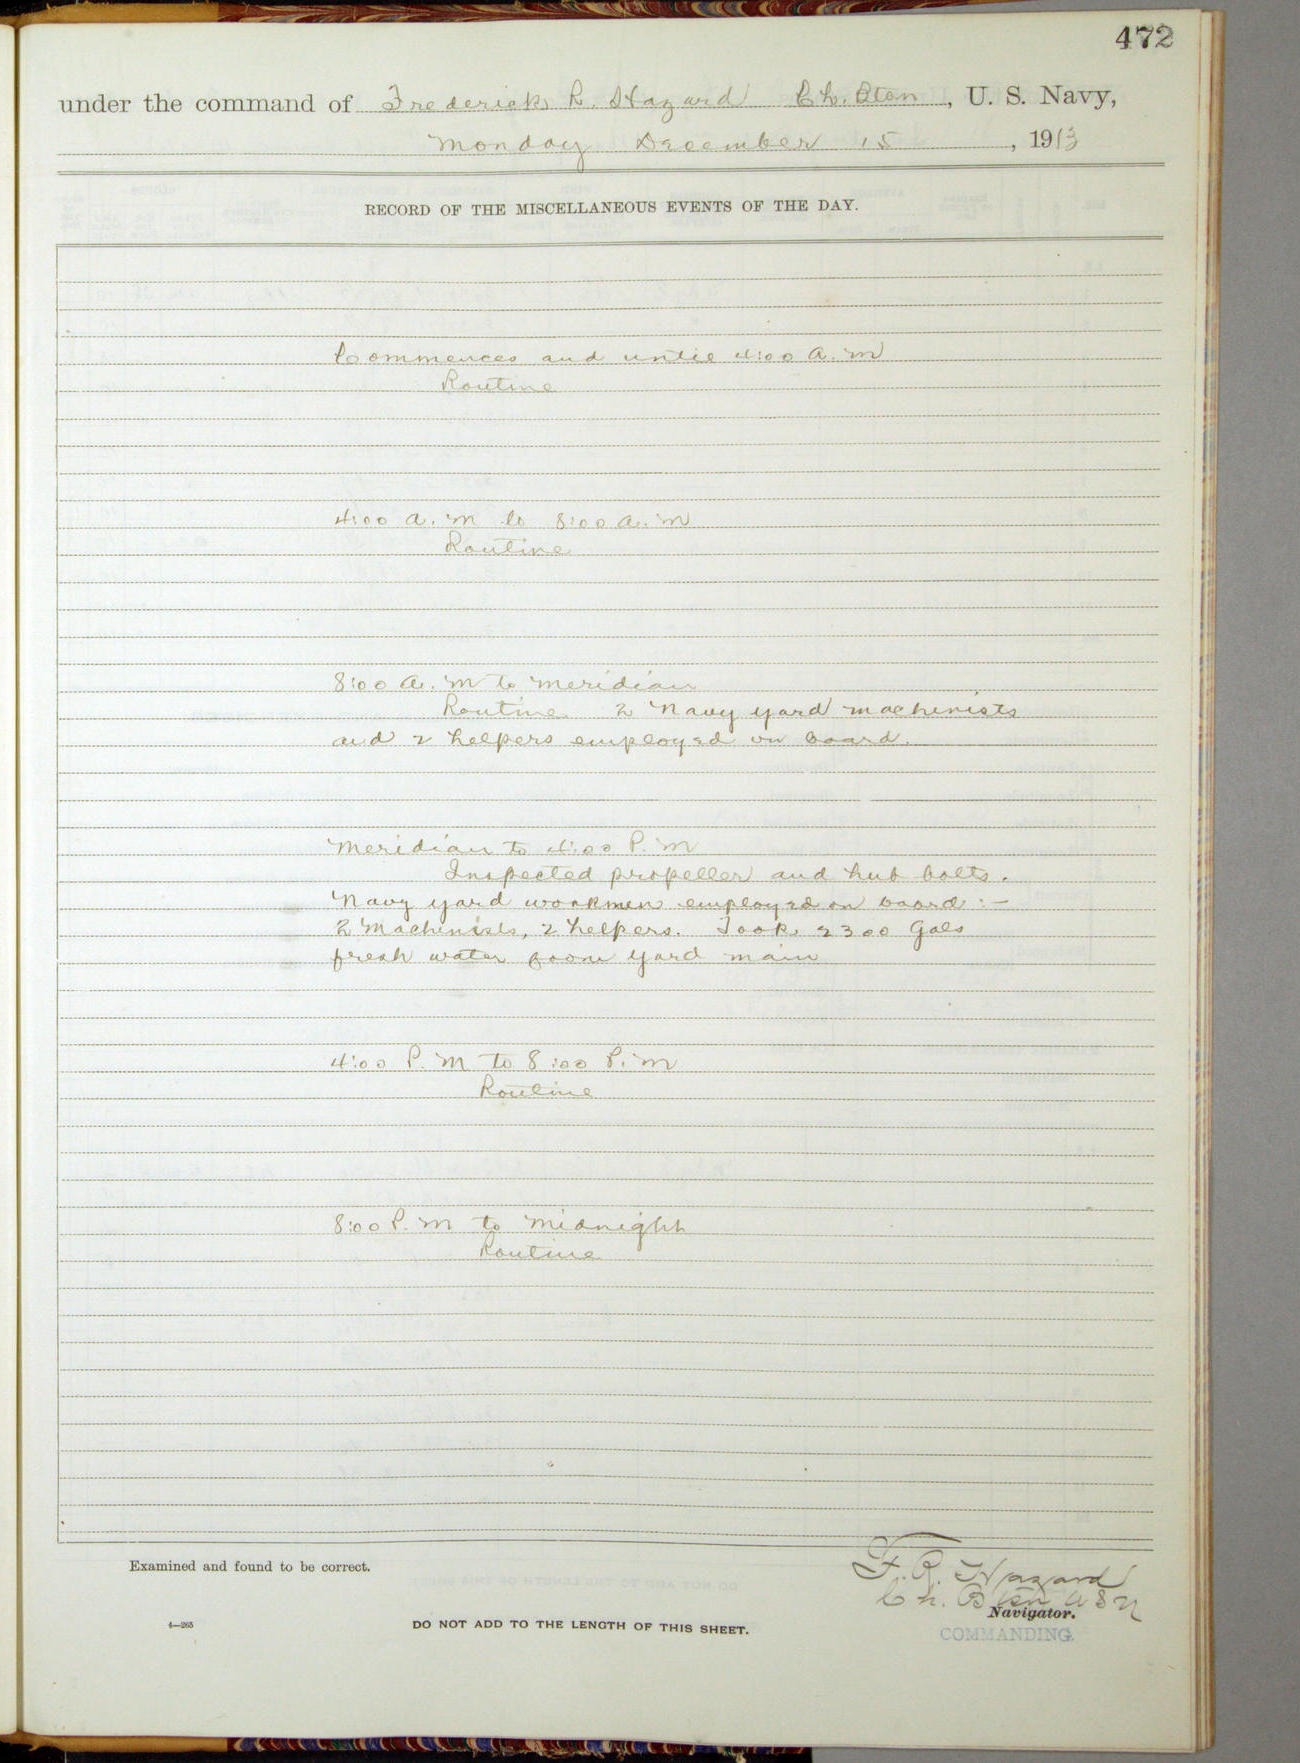 472
under the command of Frederick R. Hazard Ch. Btsn, U. S. Navy,
Monday December 15, 1913
RECORD OF THE MISCELLANEOUS EVENTS OF THE DAY.
Commences and until 4:00 A. M
Routine
4:00 A. M to 8:00 A. M
Routine
8:00 A. M to Meridian
Routine 2 Navy yard machinists
and 2 helpers employed on board.
Meridian to 4:00 P. M
Inspected propeller and hub bolts.
Navy yard workmen employed on board :-
2 Machinists, 2 helpers. Took 2300 Gals
fresh water from yard main
4:00 P. M to 8:00 P. M
Routine
8:00 P. M to Midnight
Routine
Examined and found to be correct.
F. R. Hazard
Ch. Btsn U S N
Navigator.
COMMANDING.
4—265
DO NOT ADD TO THE LENGTH OF THIS SHEET.